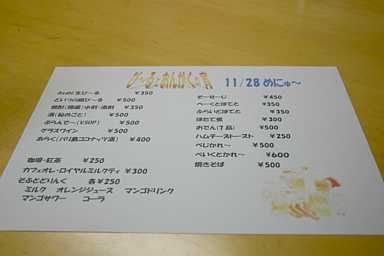 び〜ると おんがくの宵 11/28 めにゅ〜
Asahi 生び〜る ¥350
どいつの瓶び〜る ¥500
焼酎(麦・芋・米) ¥500
酒 ¥500
ぶらんで〜(VSOP) ¥500
グラスワイン ¥500
あらく(バリ島ココナッツ酒) ¥400
珈琲・紅茶 ¥250
カフェオレ・ロイヤルミルクティ ¥300
そふとどりんく 各¥250
ミルク オレンジジュース マンゴドリンク
マンゴサワー コーラ
そーせーじ ¥450
べーくどぽてと ¥200
ふらいどぽてと ¥350
ほたて燻 ¥300
おでん(1品) ¥500
ハムチーストースト ¥250
べじかれ〜 ¥500
べいくどかれ〜 ¥600
焼きそば ¥500